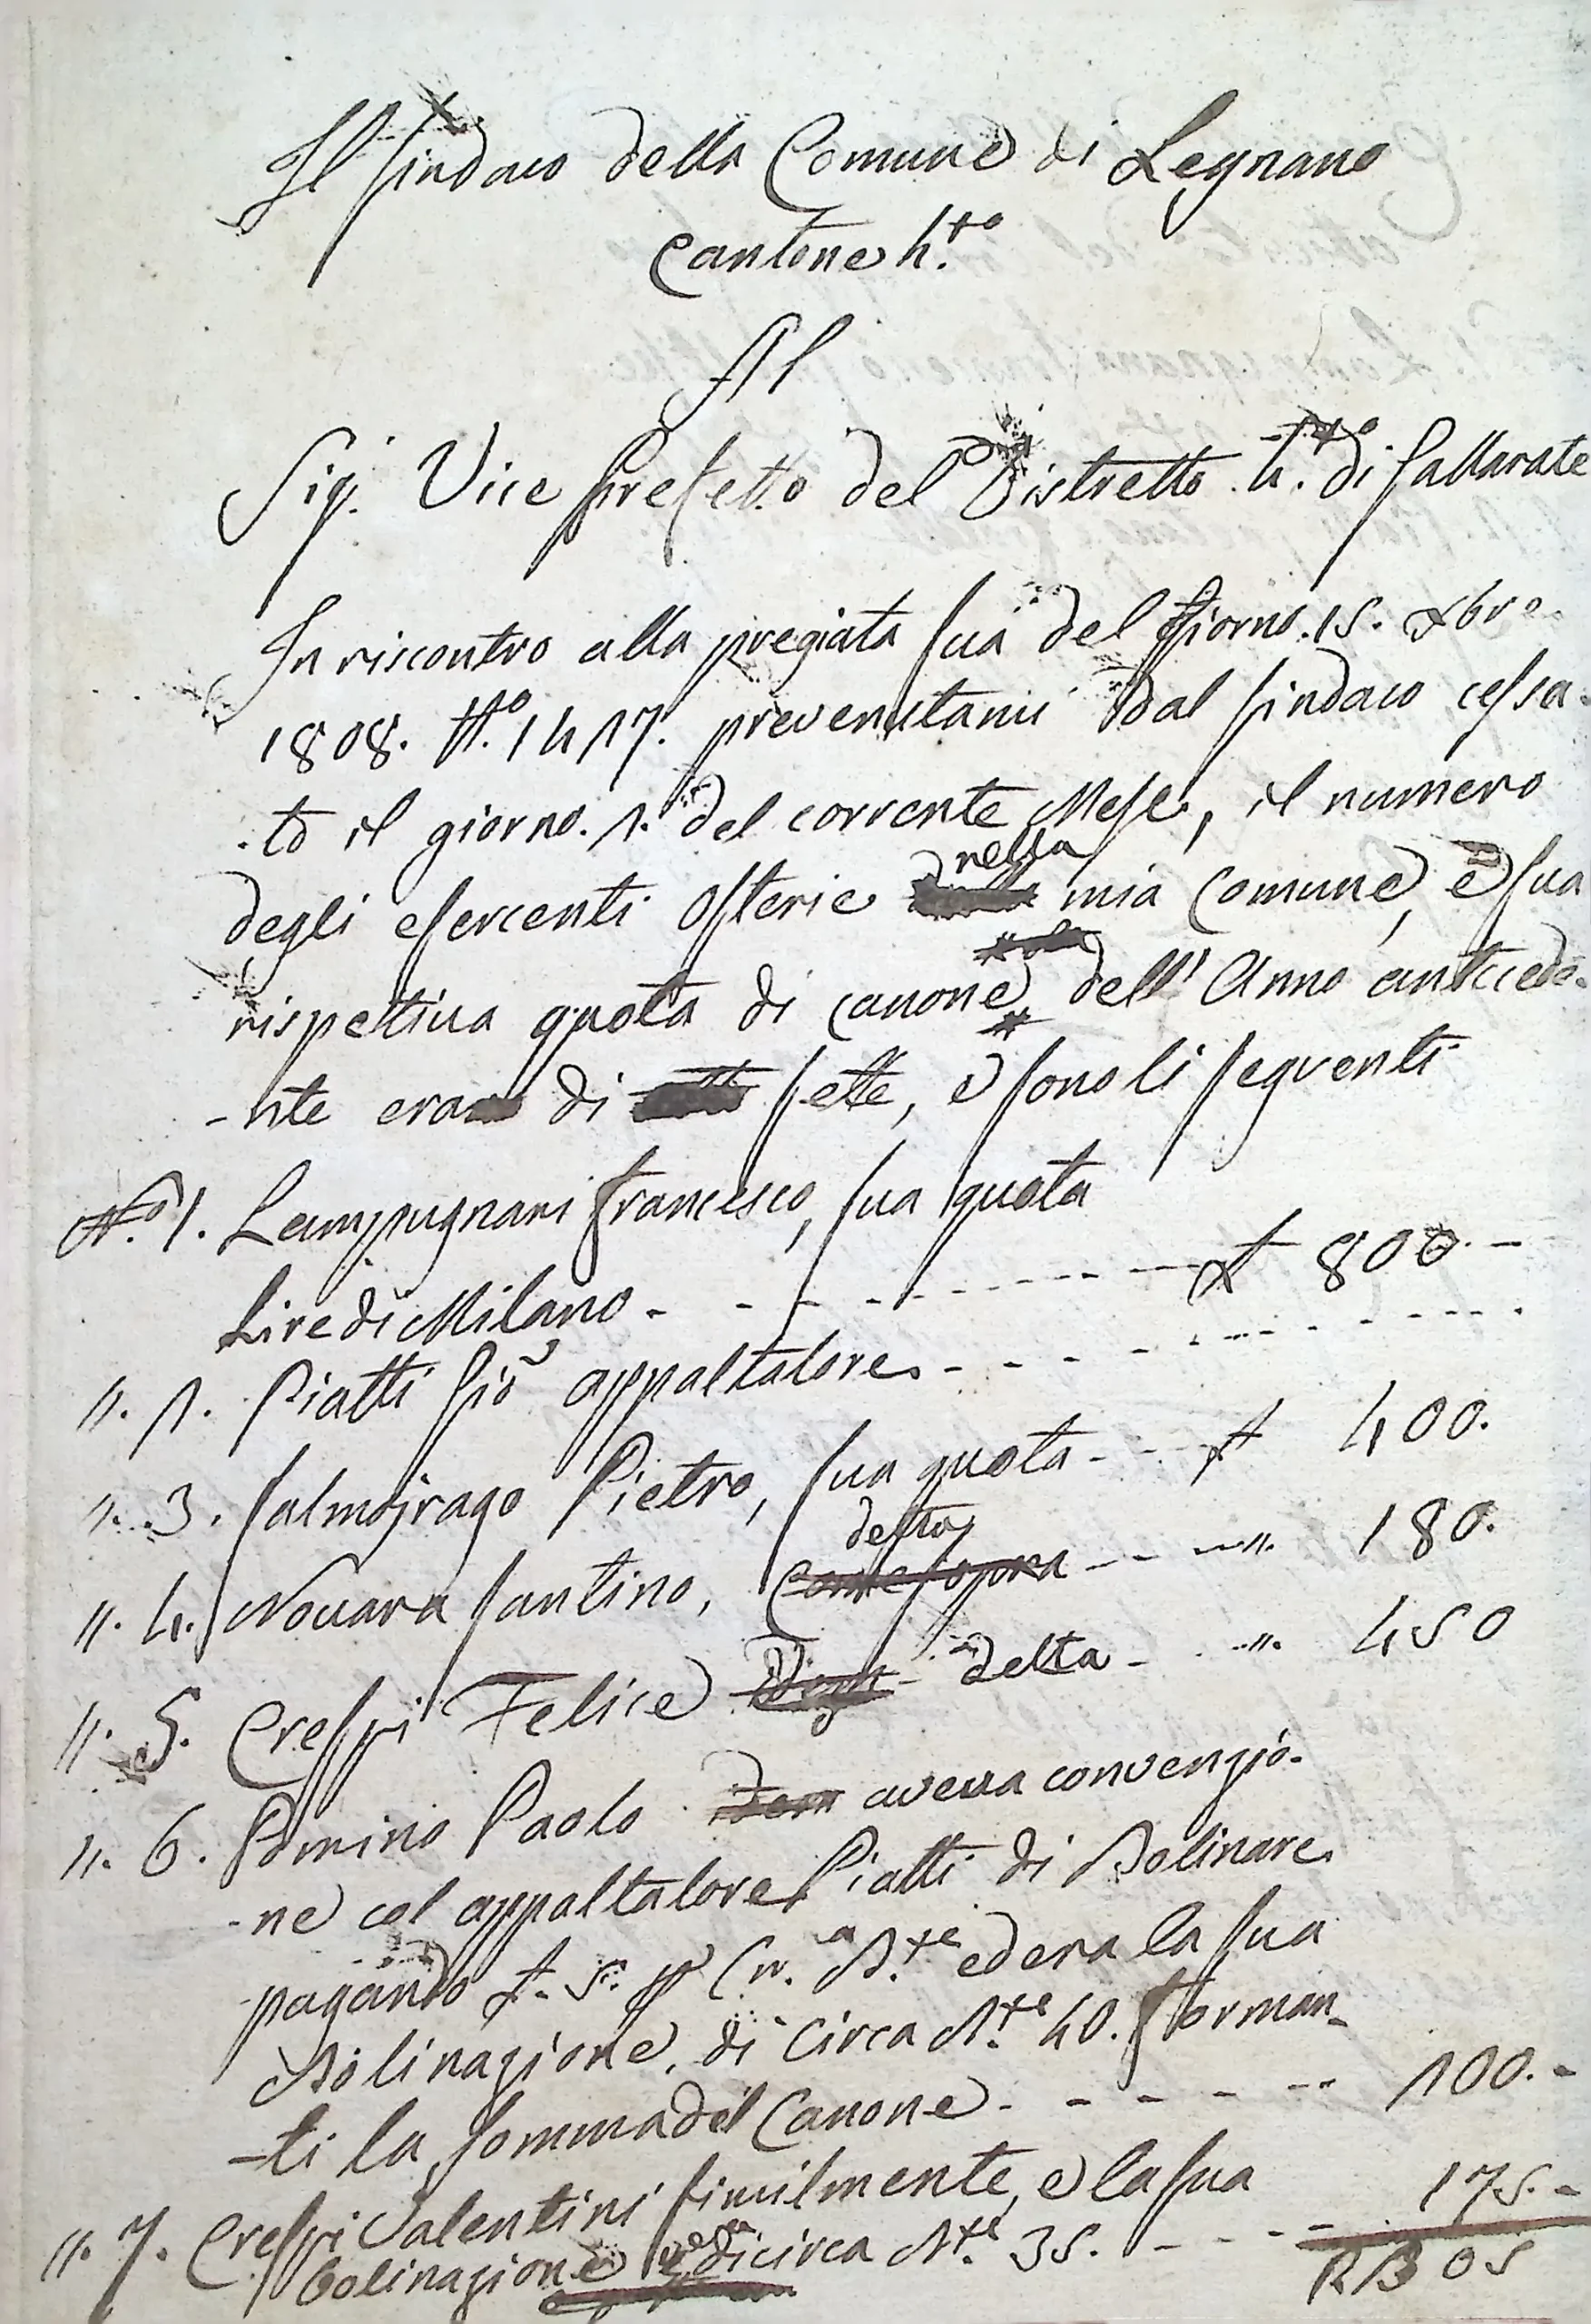 Il Sindaco della Comune di Legnano
Cantone 4.to
Al
Sig.r Vice Prefetto del Distretto 4.to di Gallarate
In riscontro alla pregiata sua del Giorno. 15. Xbre.
1808. N.o 1417. prevenutami dal Sindaco cessa-
-to il giorno. 2. del corrente Mese, il numero
degli esercenti Osterie nella mia Comune, e sua
rispettiva quota di canone, dell' Anno antecede-
-nte era di sette, e sono li seguenti
N.o 1. Lampugnani Francesco, sua quota
Lire di Milano - - - - - - £ 800. -
". 2. Piatti Gio appaltatore - - - - - -
". 3. Salmojrago Pietro, sua quota - - £ 400.
". 4. Novara Santino, detta - - ". 180.
". 5. Crespi Felice detta - - ". 450
". 6. Pomino Paolo aveva convenzio-
-ne col appaltatore Piatti di Bolinare
pagando £. 5. p ed era la sua
Bolinazione, di Circa 40. Forman-
-ti la somma del Canone - - - - - 200. -
". 7. Crespi Valentini similmente, e la sua 175. -
bolinazione di circa 35. - - - -
2305